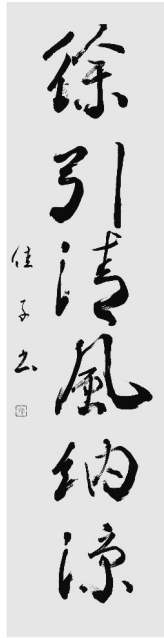 徐引清風納涼
佳子书